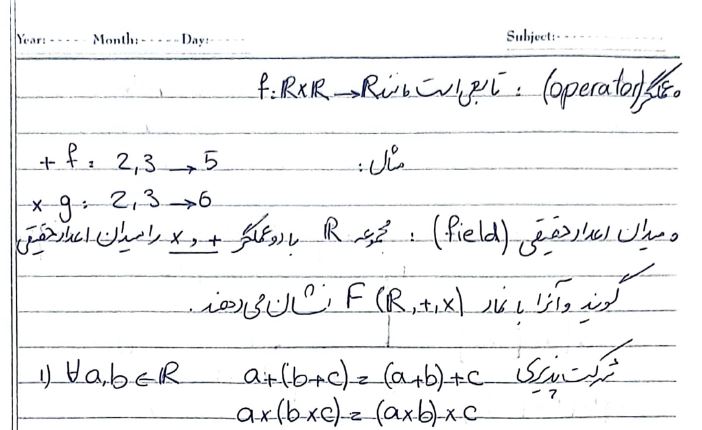 Year: Month: Day: Subject:
• عملگر (operator) : تابعی است مانند f: R×R → R
مثال:
+ f: 2,3 → 5
× g: 2,3 → 6
• میدان اعداد حقیقی (field) : مجموعه R با دو عملگر + و × را میدان اعداد حقیقی
گویند و آنرا با نماد F (R,+,×) نشان می‌دهند.
1) ∀a,b∈R a+(b+c) = (a+b)+c شرکت پذیری
a×(b×c) = (a×b)×c